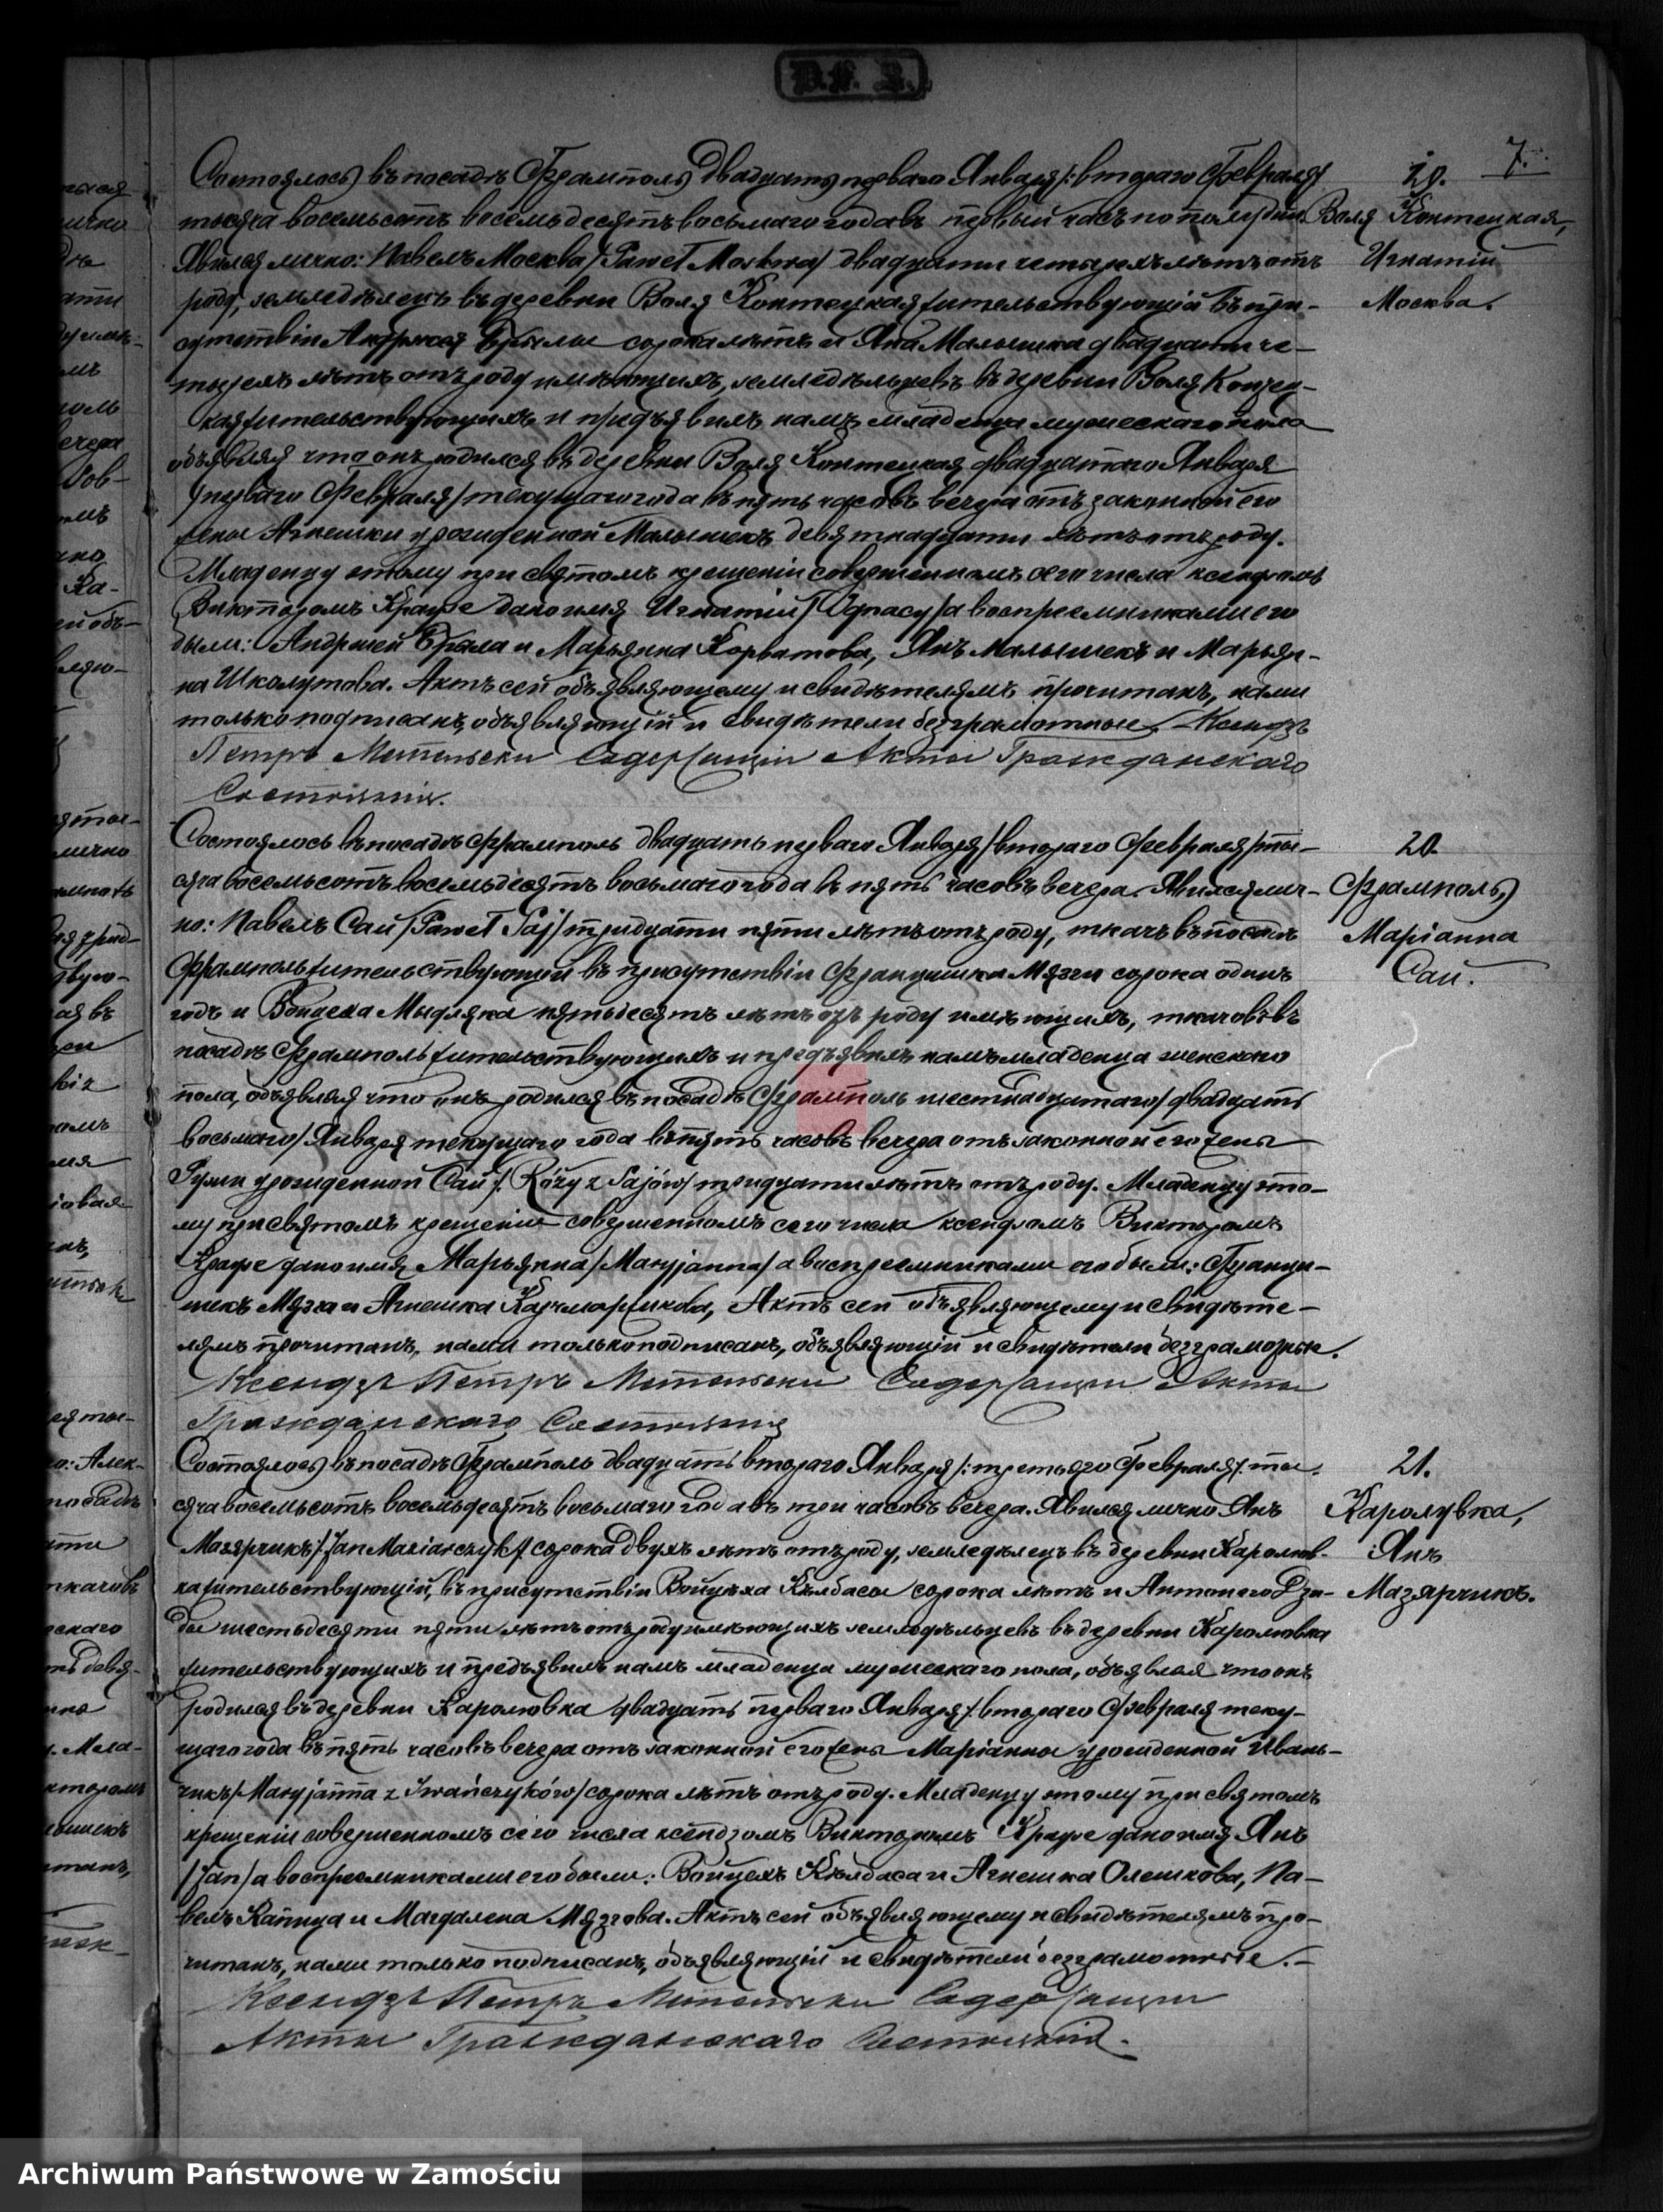 D.f. 2.
7.
Состоялось въ посадѣ Фрамполь двадцать перваго Января /: втораго Февраля/
тысяча восемьсотъ восемьдесятъ восьмаго года въ первый часъ по полудни
Явился лично: Павелъ Москва /Paweł Moskwa/ двадцати четырехъ лѣтъ отъ
роду, земледѣлецъ въ деревни Воля Контецкая жительствующій въ при-
сутствіи Андржея Брылы сорока лѣтъ и Яна Малышка двадцати че-
тырехъ лѣтъ отъ роду имѣющихъ, земледѣльцевъ въ деревни Воля Концец-
кая жительствующихъ и предъявилъ намъ младенца мужескаго пола
объявляя что онъ родился въ деревни Воля Контецкая двадцатаго Января
/перваго Февраля/ текущаго года въ пять часовъ вечера отъ законной его
жены Агнешки урожденной Малышекъ девятнадцати лѣтъ отъ роду.
Младенцу этому при святомъ крещеніи совершенномъ сего числа ксендзомъ
Викторомъ Краузе дано имя Игнатій /Ignacy/ а воспреемниками его
были: Андржей Брыла и Марьянна Корватова, Янъ Малышекъ и Марьян-
на Школутова. Актъ сей объявляющему и свидѣтелямъ прочитанъ, нами
только подписанъ, объявляющій и свидѣтели безграмотные. Ксендзъ
Петръ Содержащій Акты Гражданскаго
Состоянія.
20.
Воля Контецкая,
Игнатій
Москва.
Состоялось въ посадѣ Фрамполь двадцать перваго Января /втораго Февраля/ ты-
сяча восемьсотъ восемьдесятъ восьмаго года въ пять часовъ вечера. Явился лич-
но: Павелъ Сай /Paweł Saj/ тридцати пяти лѣтъ отъ роду, ткачъ въ посадѣ
Фрамполь жительствующій въ присутствіи Францишка Мязги сорока одинъ
годъ и Войцеха Мыдляка пятьдесятъ лѣтъ отъ роду имѣющихъ, ткачовъ въ
посадѣ Фрамполь жительствующихъ и предъявилъ намъ младенца женскаго
пола, объявляя что онъ родился въ посадѣ Фрамполь шестнадцатаго /двадцать
восьмаго/ Января текущаго года въ пять часовъ вечера отъ законной его жены
Рузи урожденной Сай /: Róży z Sajów/ тридцати лѣтъ отъ роду. Младенцу это-
му при святомъ крещеніи совершенномъ сего числа ксендзомъ Викторомъ
Краузе дано имя Марьянна /Maryjanna/ а воспреемниками его были: Францы-
шекъ Мязга и Агнешка Качмаржикова, Актъ сей объявляющему и свидѣте-
лямъ прочитанъ, нами только подписанъ, объявляющій и свидѣтели безграмотные.
Ксендзъ Петръ Содержащій Акты
Гражданскаго Состоянія
20.
Фрамполь,
Маріанна
Сай.
Состоялось въ посадѣ Фрамполь двадцать втораго Января /: третьяго Февраля/: ты-
сяча восемьсотъ восемьдесятъ восьмаго года въ три часовъ вечера. Явился лично Янъ
Мазярчикъ /: Jan Maziarczyk/ сорока двухъ лѣтъ отъ роду, земледѣлецъ въ деревни Каролюв-
ка жительствующій, въ присутствіи Войцѣха Кѣлбасы сорока лѣтъ и Антонего Дзю-
бы шестьдесяти пяти лѣтъ отъ роду имѣющихъ земледѣльцевъ въ деревни Каролювка
жительствующихъ и предъявилъ намъ младенца мужескаго пола, объявляя что онъ
родился въ деревни Каролювка двадцать перваго Января /: втораго Февраля теку-
щаго года въ пять часовъ вечера отъ законной его жены Маріанны урожденной Ивань-
чикъ /Maryjanna z Iwańczyków/ сорока лѣтъ отъ роду. Младенцу этому при святомъ
крещеніи совершенномъ сего числа ксендзомъ Викторомъ Краузе дано имя Янъ
/Jan/ а воспреемниками его были: Войцехъ Кѣлбаса и Агнешка Олешкова, Па-
велъ Капица и Магдалена Мязгова. Актъ сей объявляющему и свидѣтелямъ про-
читанъ, нами только подписанъ, объявляющій и свидѣтели безграмотные.
Ксендзъ Петръ Содержащій
Акты Гражданскаго Состоянія.
21.
Каролувка,
Янъ
Мазярчикъ.
Archiwum Państwowe w Zamościu